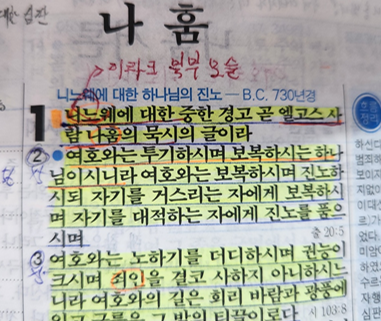 나 훔
이라크 북부 모술
니느웨에 대한 하나님의 진노 — B.C. 730년경
1 니느웨에 대한 중한 경고 곧 엘고스 사
람 나훔의 묵시의 글이라
2 여호와는 투기하시며 보복하시는 하나
님이시니라 여호와는 보복하시며 진노하
시되 자기를 거스리는 자에게 보복하시
며 자기를 대적하는 자에게 진노를 품으
시며
출 20:5
3 여호와는 노하기를 더디하시며 권능이
크시며 죄인을 결코 사하지 아니하시느
니라 여호와의 길은 회리 바람과 광풍에
있고 구름은 그 발의 티끌이로다
시 103:8